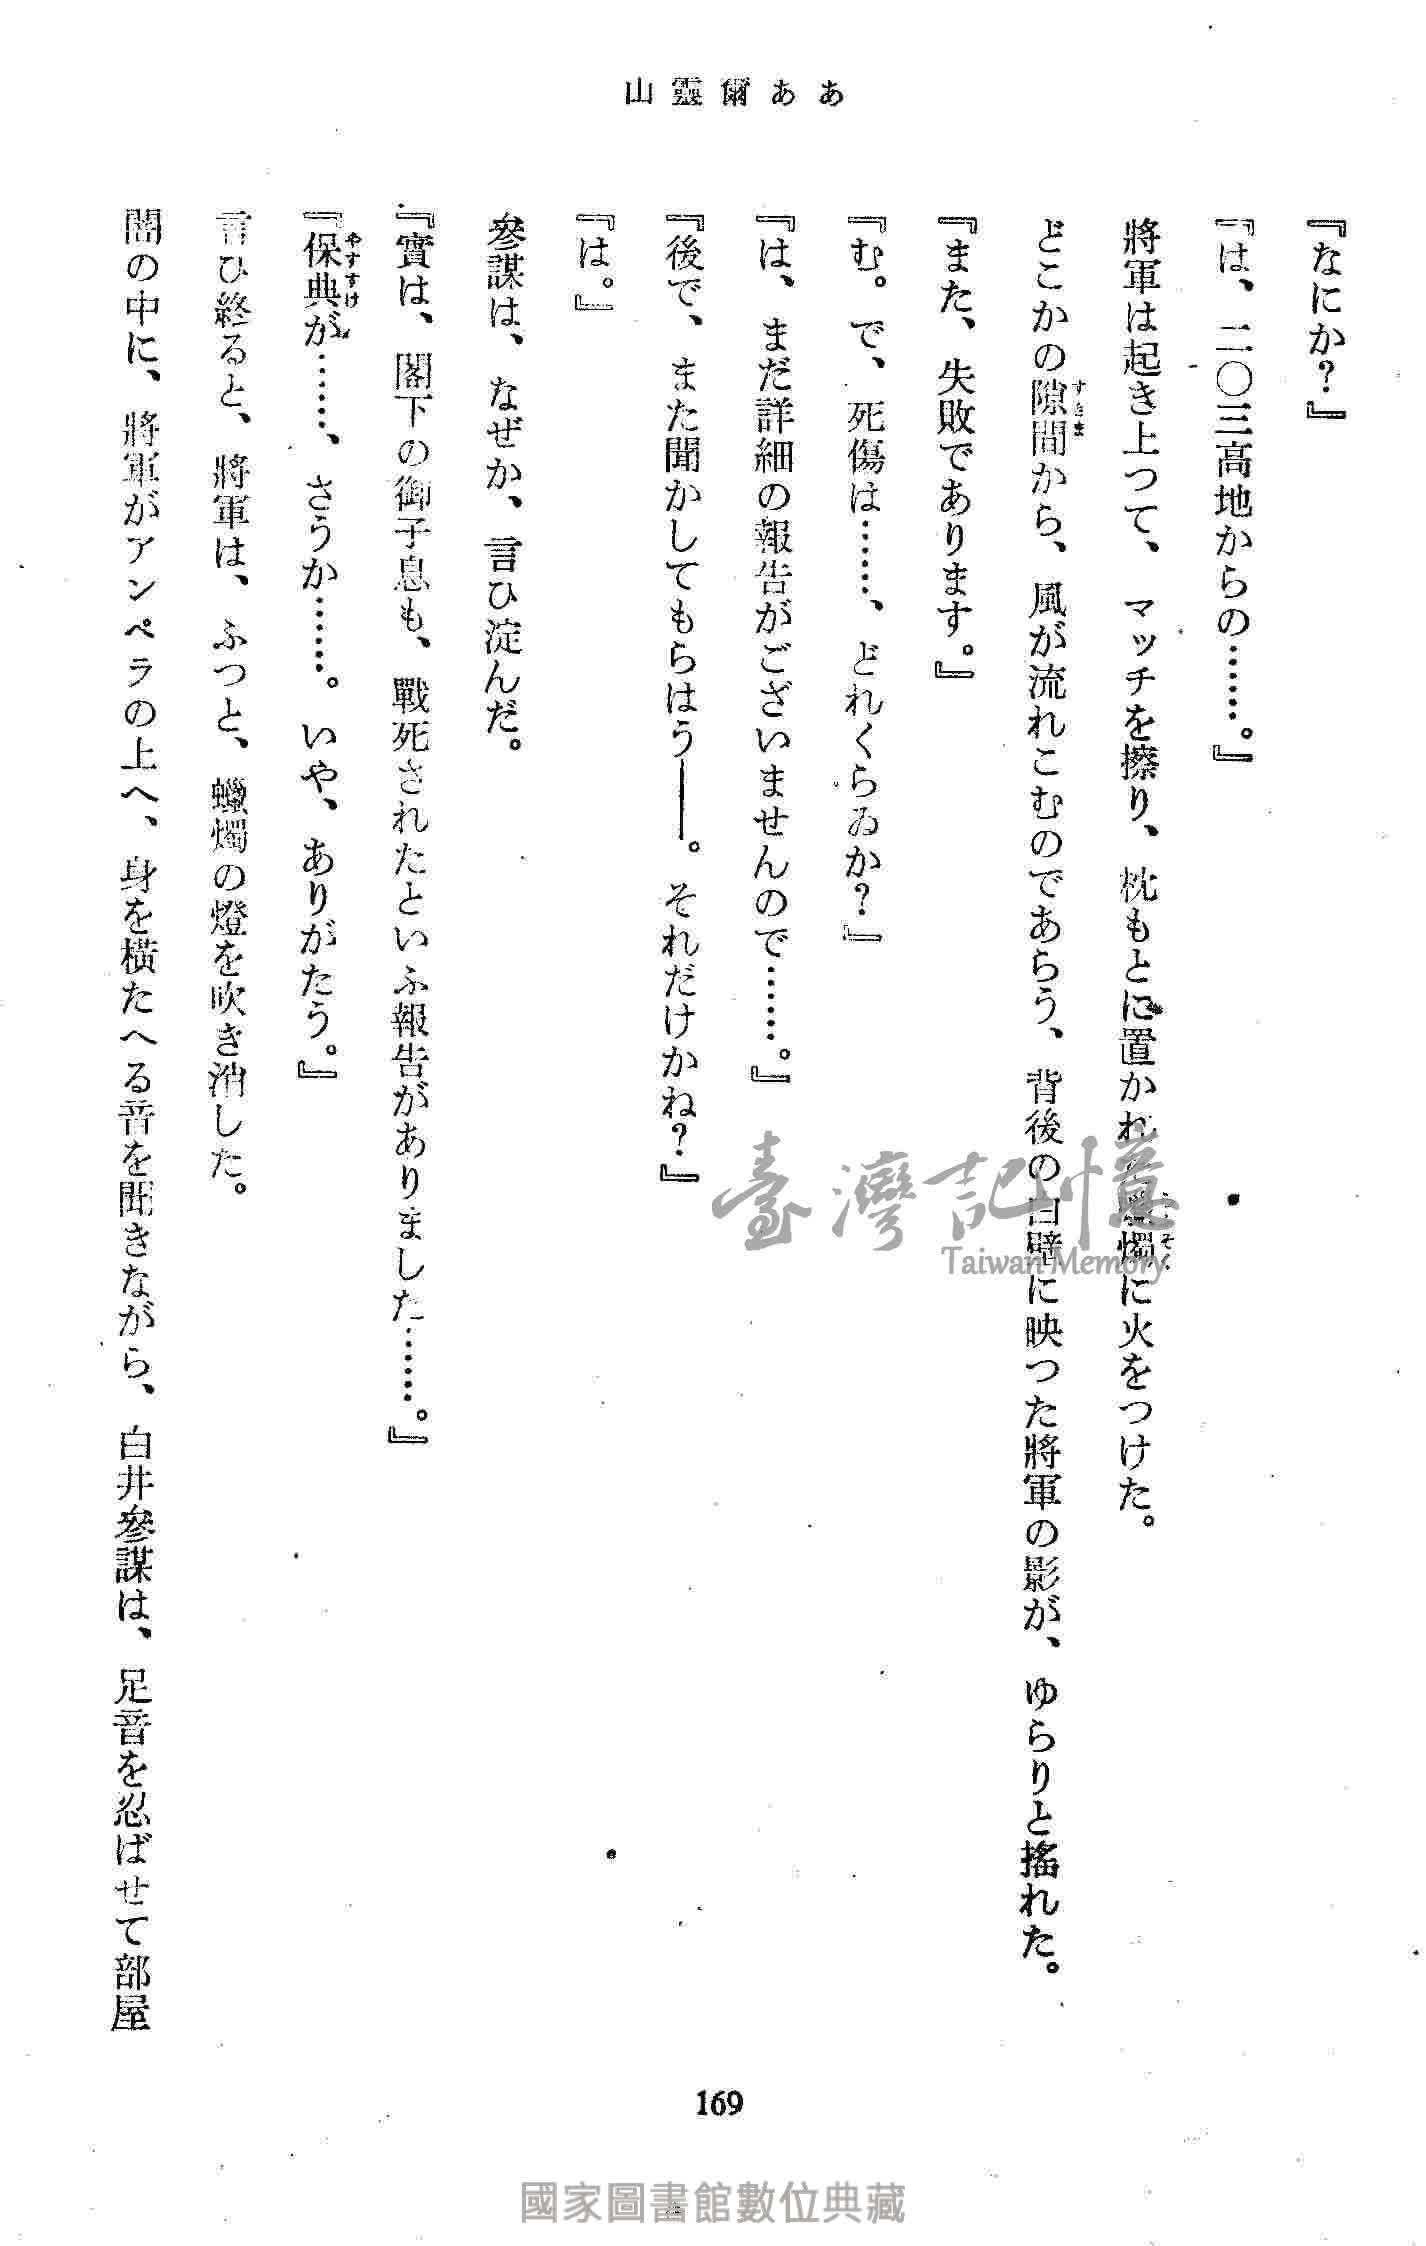 山靈爾ああ
『なにか？』
『は、二〇三高地からの……。』
將軍は起き上つて、マッチを擦り、枕もとに置かれ燭に火をつけた。
どこかの隙間から、風が流れこむのであらう、背後の白壁に映つた將軍の影が、ゆらりと搖れた。
すきま
『また、失敗であります。』
『む。で、死傷は……、どれくらゐか？』
『は、まだ詳細の報告がございませんので……。』
『後で、また聞かしてもらはう――。それだけかね？』
『は。』
參謀は、なぜか、言ひ淀んだ。
『實は、閣下の御子息も、戰死されたといふ報告がありました……。』
『保典が……、さうか……。いや、ありがたう。』
やすすけ
言ひ終ると、將軍は、ふつと、蠟燭の燈を吹き消した。
闇の中に、將軍がアンペラの上へ、身を橫たへる音を聞きながら、白井參謀は、足音を忍ばせて部屋
169
臺灣記憶
Taiwan Memory
國家圖書館數位典藏